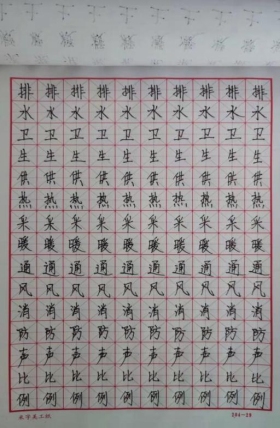 排 排 排 排 排 排 排 排 排 排
水 水 水 水 水 水 水 水 水 水
卫 卫 卫 卫 卫 卫 卫 卫 卫 卫
生 生 生 生 生 生 生 生 生 生
供 供 供 供 供 供 供 供 供 供
热 热 热 热 热 热 热 热 热 热
采 采 采 采 采 采 采 采 采 采
暖 暖 暖 暖 暖 暖 暖 暖 暖 暖
通 通 通 通 通 通 通 通 通 通
风 风 风 风 风 风 风 风 风 风
消 消 消 消 消 消 消 消 消 消
防 防 防 防 防 防 防 防 防 防
声 声 声 声 声 声 声 声 声 声
比 比 比 比 比 比 比 比 比 比
例 例 例 例 例 例 例 例 例 例